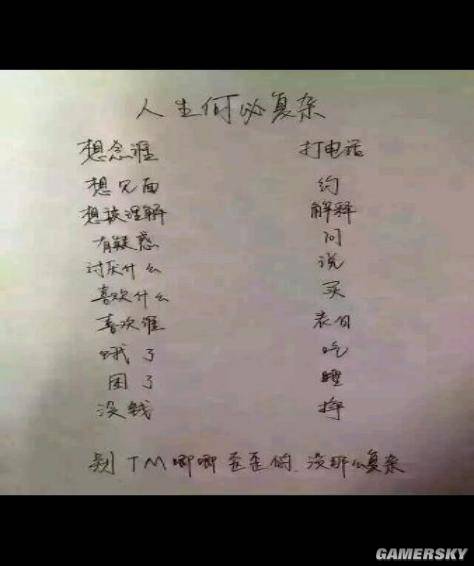 人生何必复杂
想念谁 打电话
想见面 约
想被理解 解释
有疑惑 问
讨厌什么 说
喜欢什么 买
喜欢谁 表白
饿了 吃
困了 睡
没钱 挣
别TM唧唧歪歪的,没那么复杂
GAMERSKY